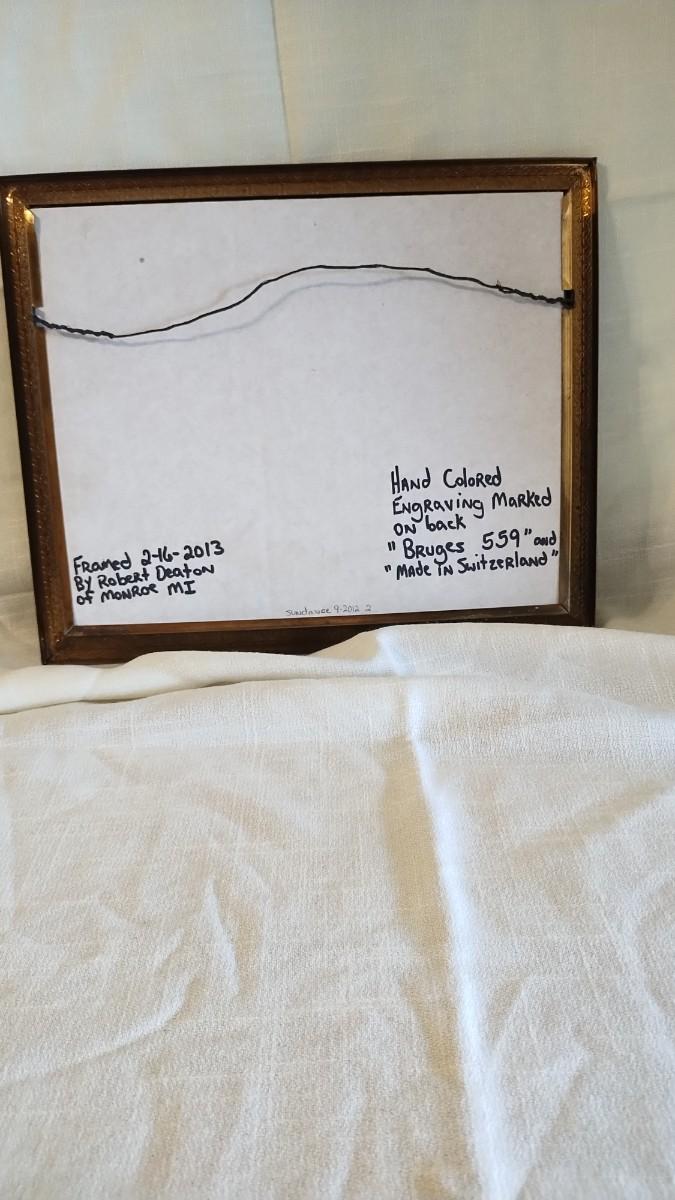 Hand Colored
Engraving Marked
on back
"Bruges 559" and
"Made in Switzerland"
Framed 2-16-2013
By Robert Deaton
of Monroe MI
Sundance 9-2012 2